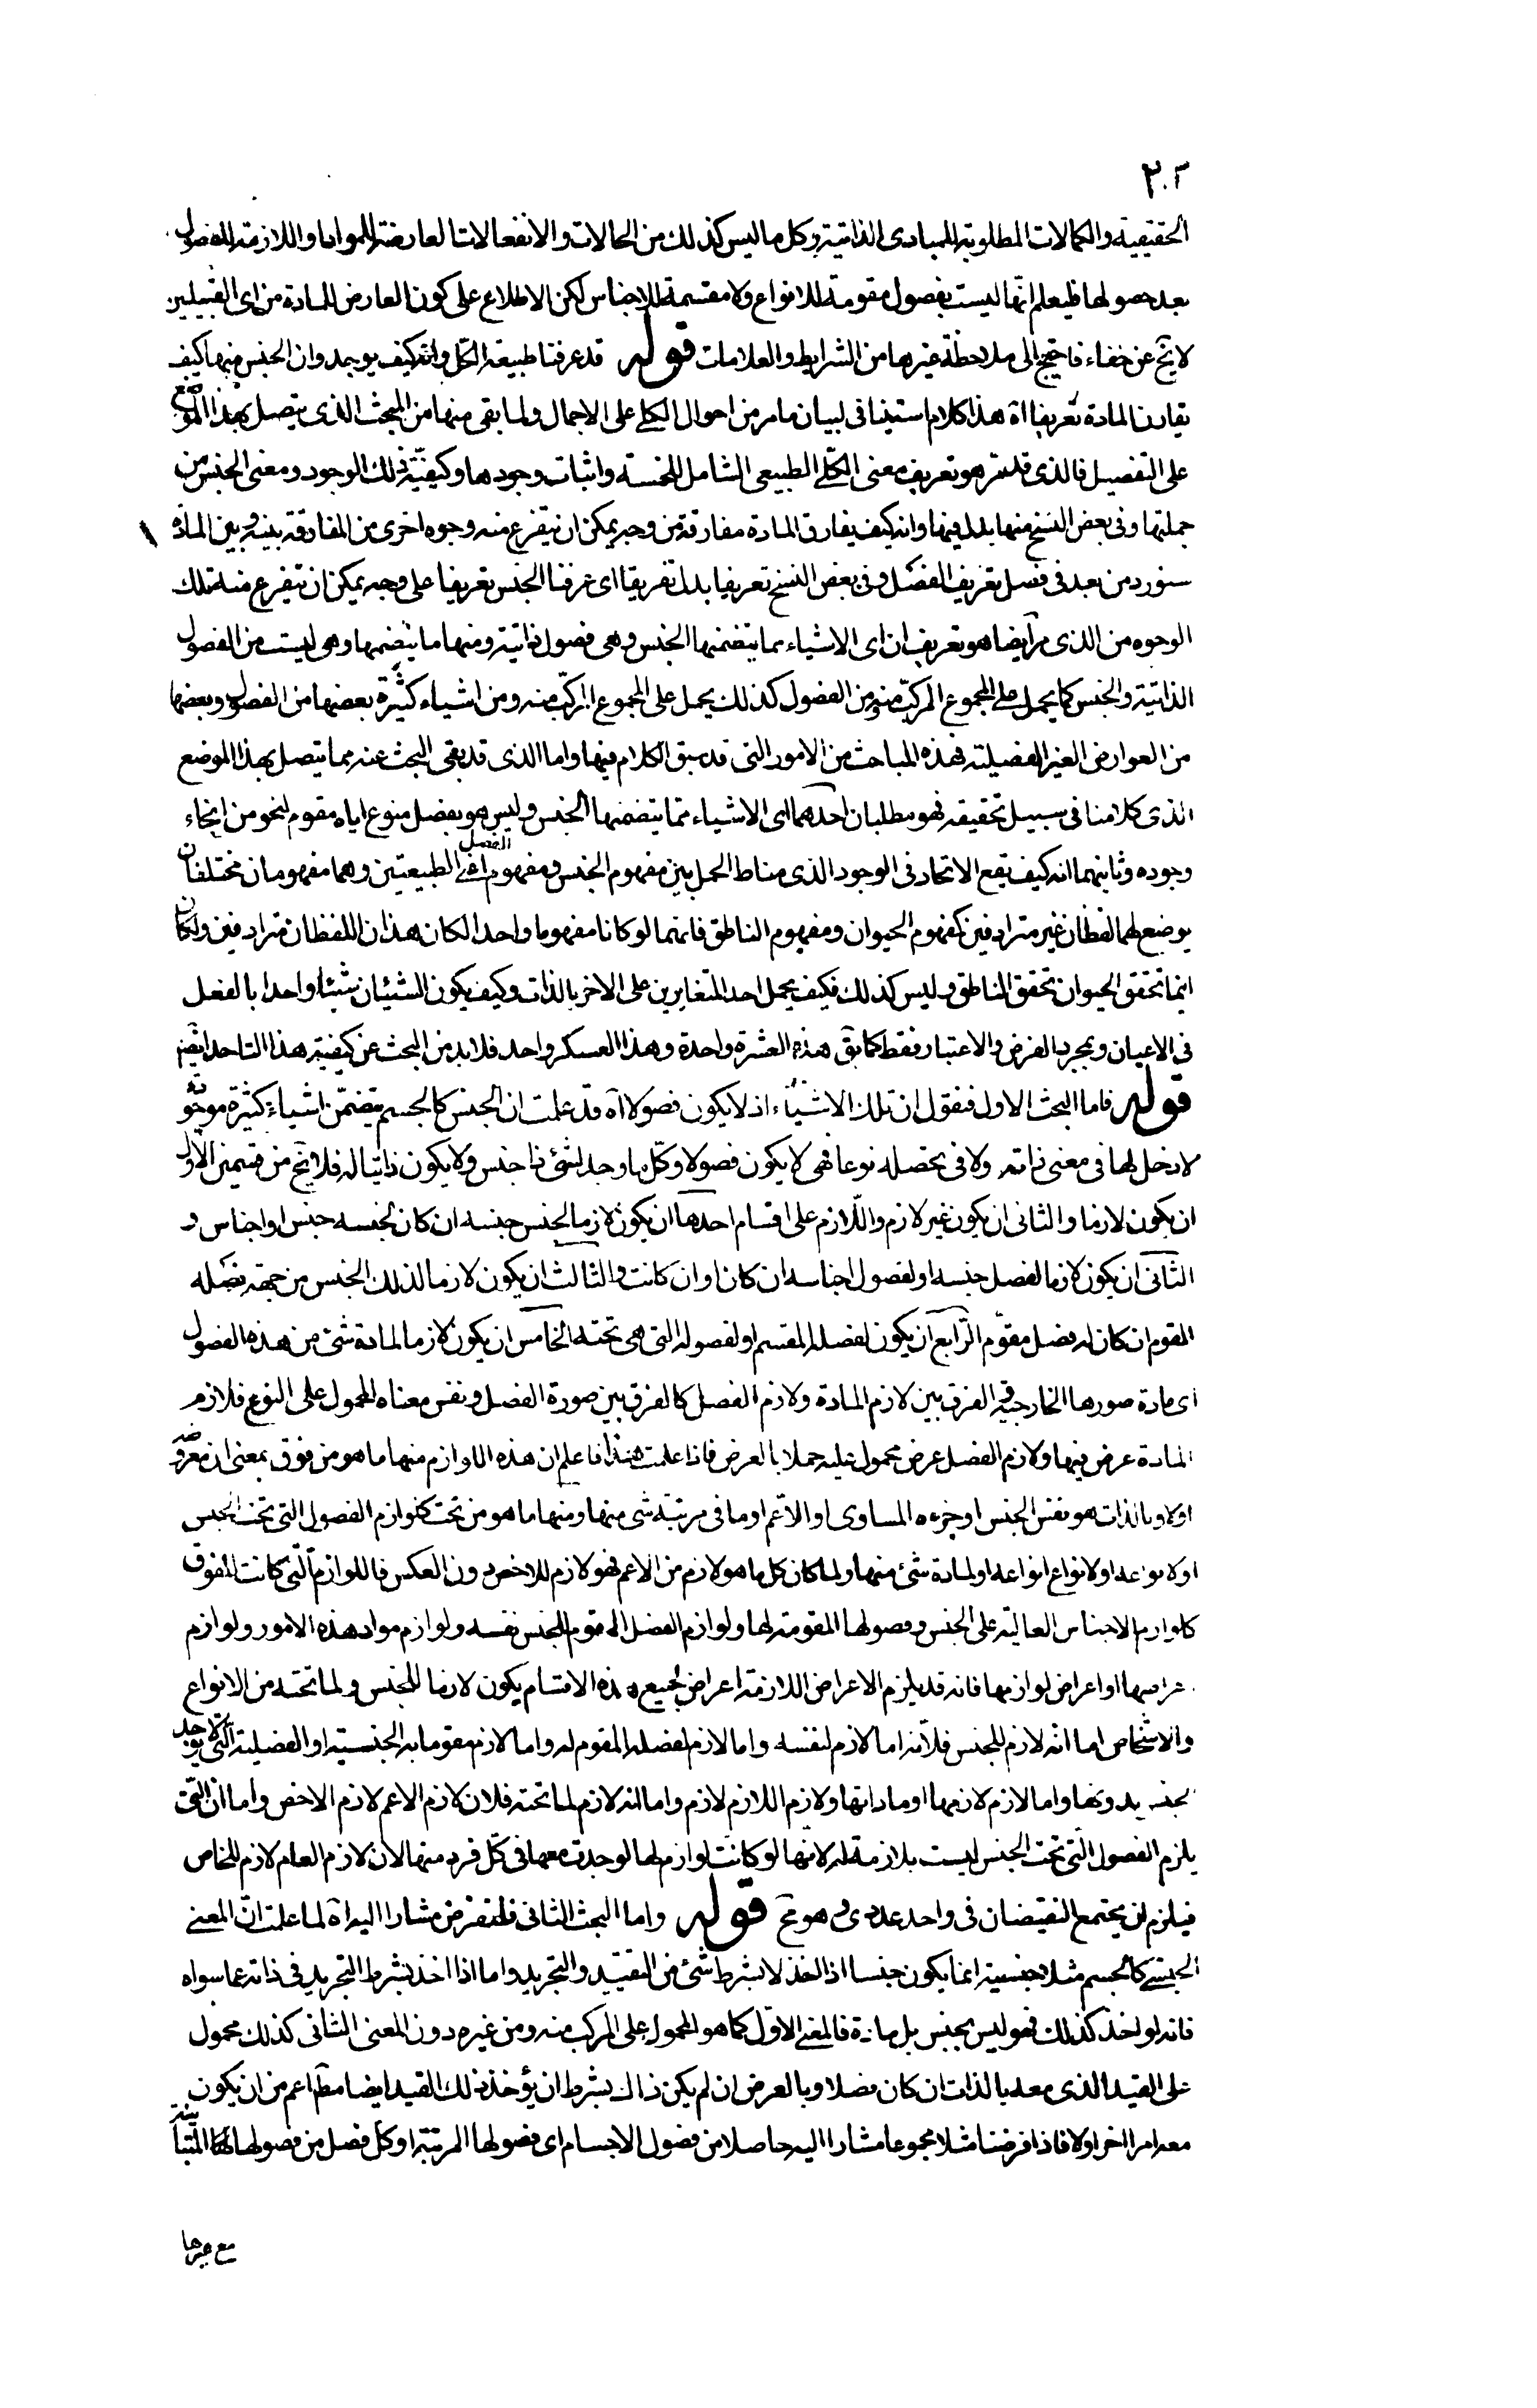 ٢٠٣
الحقيقية والكمالات المطلوبة للمبادى الذاتية وكل ما ليس كذلك من الحالات والانفعالات العارضة للمواد او اللازمة للفصول
بعد حصولها فليعلم انها ليست بفصول مقومة للانواع ولا مقسمة للاجناس لكن الاطلاع على كون العارض للمادة من اى القبيلين
لا يخ عن خفاء فاحتيج الى ملاحظة غيرها من الشرايط والعلامات قوله قد عرفنا طبيعة الكلى وانه كيف يوجد وان الجنس منها كيف
يقارن المادة تعريفا آه هذا كلام استينافى لبيان ما مر من احوال الكلى على الاجمال ولما بقى منها من البحث الذى يتصل بهذا الموضع
على التفصيل فالذى قد مر هو تعريف معنى الكلى الطبيعى الشامل للخمسة واثبات وجودها وكيفية ذلك الوجود ومعنى الجنس من
جملتها وفى بعض النسخ منها بدل فيها وانه كيف يفارق المادة مفارقة من وجه يمكن ان يتفرع منه وجوه اخرى من المفارقة بينه وبين المادة
سنورد من بعد فى فصل تعريف الفصل وفى بعض النسخ تعريفا بدل تفريقا اى عرفنا الجنس تعريفا على وجه يمكن ان يتفرع منه تلك
الوجوه من الذى مر ايضا هو تعريف ان اى الاشياء مما يتضمنها الجنس وهى فصول ذاتية ومنها ما يتضمنها وهى ليست من الفصول
الذاتية والجنس كما يحمل على المجموع المركب منه ومن الفصول كذلك يحمل على المجموع المركب منه ومن اشياء كثيرة بعضها من الفصول وبعضها
من العوارض الغير الفصلية فهذه المباحث من الامور التى قد سبق الكلام فيها واما الذى قد بقى البحث عنه مما يتصل بهذا الموضع
الذى كلامنا فى سبيل تحقيقه فهو مطلبان احدهما اى الاشياء مما يتضمنها الجنس وليس هو بفصل منوع اياه مقوم لنحو من انحاء
وجوده وثانيهما انه كيف يقع الاتحاد فى الوجود الذى مناط الحمل بين مفهوم الجنس ومفهوم الفصل الطبيعتين وهما مفهومان مختلفان
يوضع لهما لفظان غير مترادفين كمفهوم الحيوان ومفهوم الناطق فانهما لو كانا مفهوما واحدا لكان هذان اللفظان مترادفين ولكان
اينما تحقق الحيوان تحقق الناطق وليس كذلك فكيف يحمل احد المتغايرين على الاخر بالذات وكيف يكون الشيئان شيئا واحدا بالفعل
فى الاعيان وبمجرد الفرض والاعتبار فقط كما يق هذه العشرة واحدة وهذا العسكر واحد فلا بد من البحث عن كيفية هذا التاحد ايضا
قوله فاما البحث الاول فنقول ان تلك الاشياء اذ لا يكون فصولا آه قد علمت ان الجنس كالجسم يتضمن اشياء كثيرة موجودة
لا دخل لها فى معنى ذاته ولا فى تحصله نوعا فهى لا يكون فصولا وكل ما وجد لشئ ذا جنس ولا يكون ذاتيا له فلا يخ من قسمين الاول
ان يكون لازما والثانى ان يكون غير لازم واللازم على اقسام احدها ان يكون لازما لجنس جنسه ان كان لجنسه جنس او اجناس و
الثانى ان يكون لازما لفصل جنسه او لفصول اجناسه ان كان او ان كانت والثالث ان يكون لازما لذلك الجنس من جهة فصله
المقوم ان كان له فصل مقوم الرابع ان يكون لفصله المقسم او لفصوله التى هى تحته الخامس ان يكون لازما لمادة شئ من هذه الفصول
اى مادة صورها الخارجية والفرق بين لازم المادة ولازم الفصل كالفرق بين صورة الفصل ونفس معناه المحمول على النوع فلازم
المادة عرض فيها ولازم الفصل عرض محمول عليه حملا بالعرض فاذا علمت هذا فاعلم ان هذه اللوازم منها ما هو من فوق بمعنى ان معروضه
اولا وبالذات هو نفس الجنس او جزءه المساوى او الاعم او ما فى مرتبة شئ منها ومنها ما هو من تحت كلوازم الفصول التى تحت الجنس
او لانوعه او لانواع انواعه او لمادة شئ منها ولما كان كل ما هو لازم من الاعم فهو لازم للاخص دون العكس فاللوازم التى كانت لما فوق
كلوازم الاجناس العالية على الجنس وفصولها المقومة لها ولوازم الفصل المقوم للجنس نفسه ولوازم مواد هذه الامور ولوازم
اعراضها او اعراض لوازمها فانه قد يلزم الاعراض اللازمة اعراض فجميع هذه الاقسام يكون لازما للجنس ولما تحته من الانواع
والاشخاص اما انه لازم للجنس فلانه اما لازم لنفسه واما لازم لفصله المقوم له واما لازم مقوماته الجنسية او الفصلية التى لا يوجد
الجنس بدونها واما لازم لازمها او مادتها ولازم اللازم لازم واما انه لازم لما تحته فلان لازم الاعم لازم الاخص واما ان التى
يلزم الفصول التى تحت الجنس ليست بلازمة له لانها لو كانت لوازم لها لوجدت معها فى كل فرد منها لان لازم العام لازم للخاص
فيلزم ان يجتمع النقيضان فى واحد عددى وهو مح قوله واما البحث الثانى فلنفرض مشارا اليه آه لما علمت ان المعنى
الجنسى كالجسم مثلا جنسيته انما يكون جنسا اذا اخذ لا بشرط شئ من التقييد والتجريد واما اذا اخذ بشرط التجريد فى ذاته عما سواه
فانه لو اخذ كذلك فهو ليس بجنس بل مادة فالمعنى الاول كما هو المحمول على المركب منه ومن غيره دون المعنى الثانى كذلك محمول
على القيد الذى معه بالذات ان كان فصلا وبالعرض ان لم يكن ذلك بشرط ان يؤخذ ذلك القيد ايضا مطلقا اعم من ان يكون
معه امر اخر اولا فاذا فرضنا مثلا مجموعا مشارا اليه حاصلا من فصول الاجسام اى فصولها المرتبة او كل فصل من فصولها المتباينة
مع غيرها